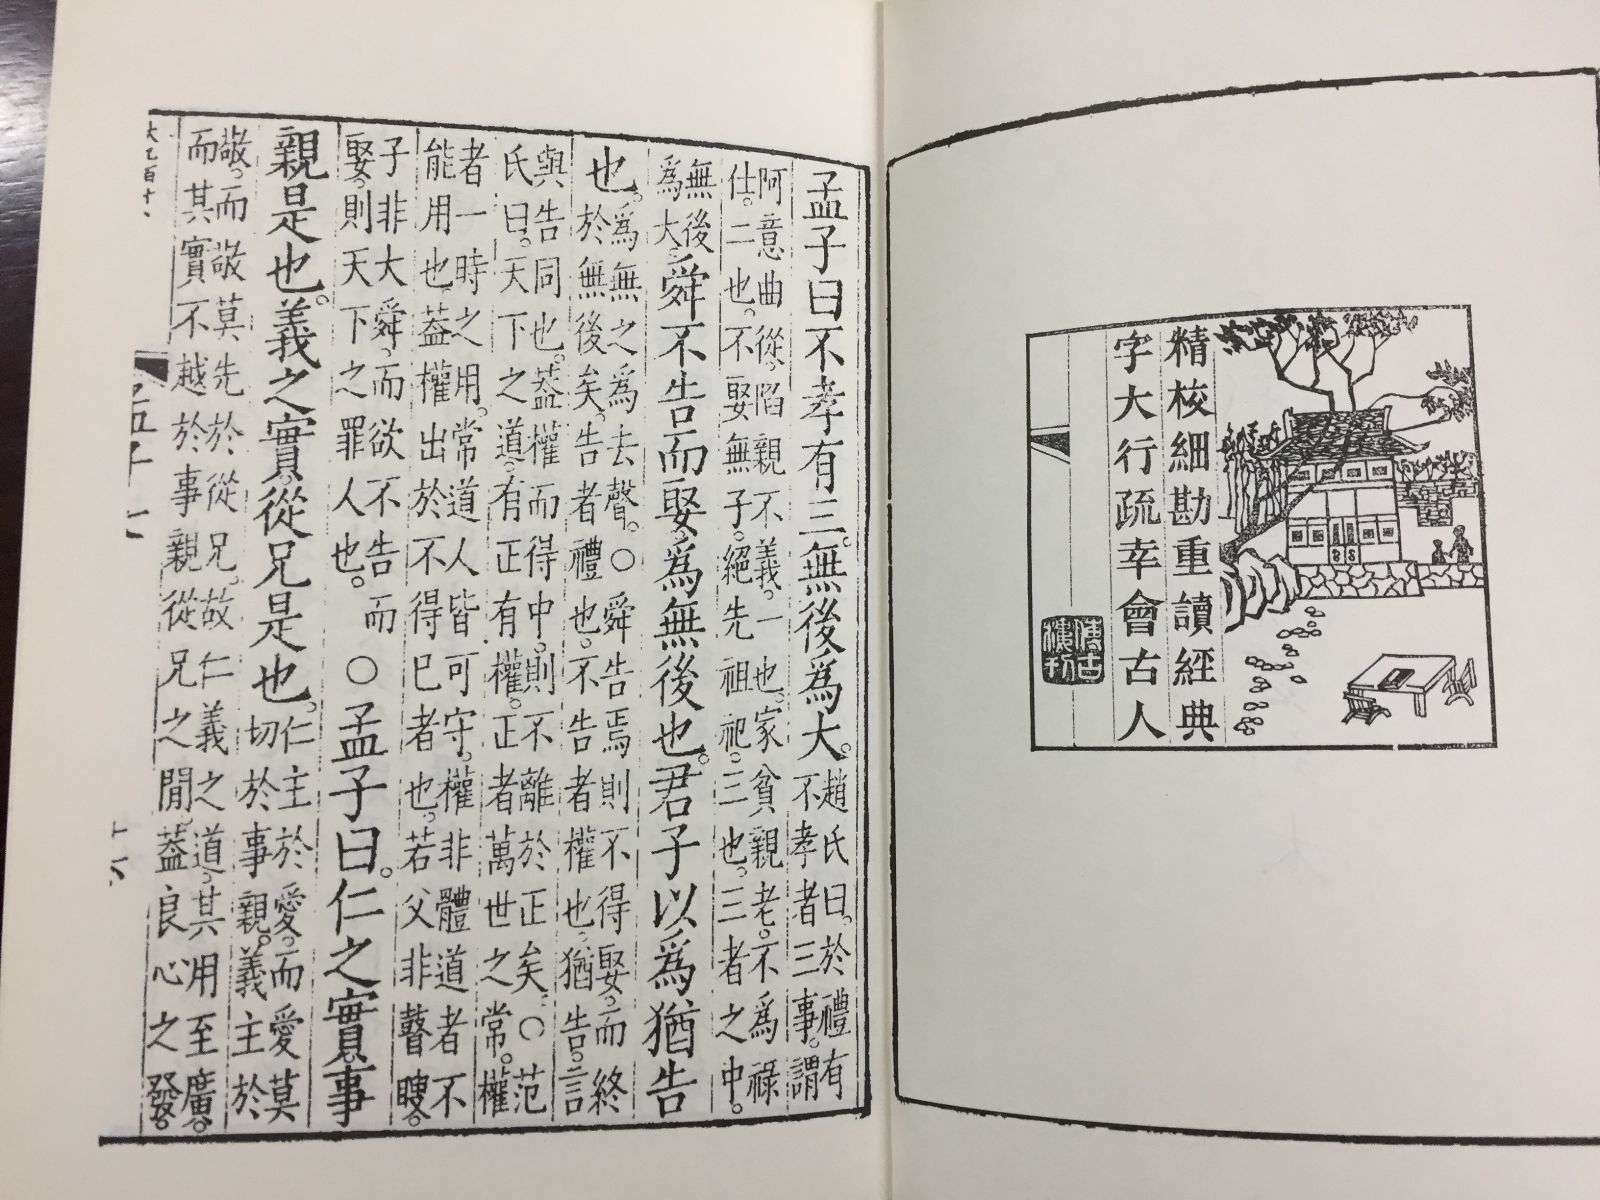 精校細勘重讀經典
字大行疏幸會古人
傳古
孟子曰不孝有三。無後爲大。
趙氏曰。於禮有
不孝者三事。謂
阿意曲從。陷親不義。一也。家貧親老。不爲祿
仕。二也。不娶無子。絕先祖祀。三也。三者之中。
無後
爲大。
舜不告而娶。爲無後也。君子以爲猶告
也。
爲無之爲去聲。○舜告焉則不得娶。而終
於無後矣。告者禮也。不告者權也。猶告。言
與告同也。蓋權而得中。則不離於正矣。○范
氏曰。天下之道。有正有權。正者萬世之常。權
者一時之用。常道人皆可守。權非體道者不
能用也。蓋權出於不得已者也。若父非瞽瞍。
子非大舜。而欲不告而
娶。則天下之罪人也。
○孟子曰。仁之實。事
親是也。義之實。從兄是也。
仁主於愛。而愛莫
切於事親。義主於
敬。而敬莫先於從兄。故仁義之道。其用至廣。
而其實不越於事親從兄之閒。蓋良心之發。
孟子七